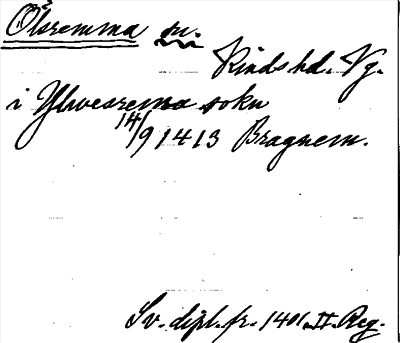 Ölsremma sn.
Kinds hd. Vg.
i Ylwesrema sokn
14/9 1413 Bragnem.
Sv. dipl. fr. 1401. II. Reg.